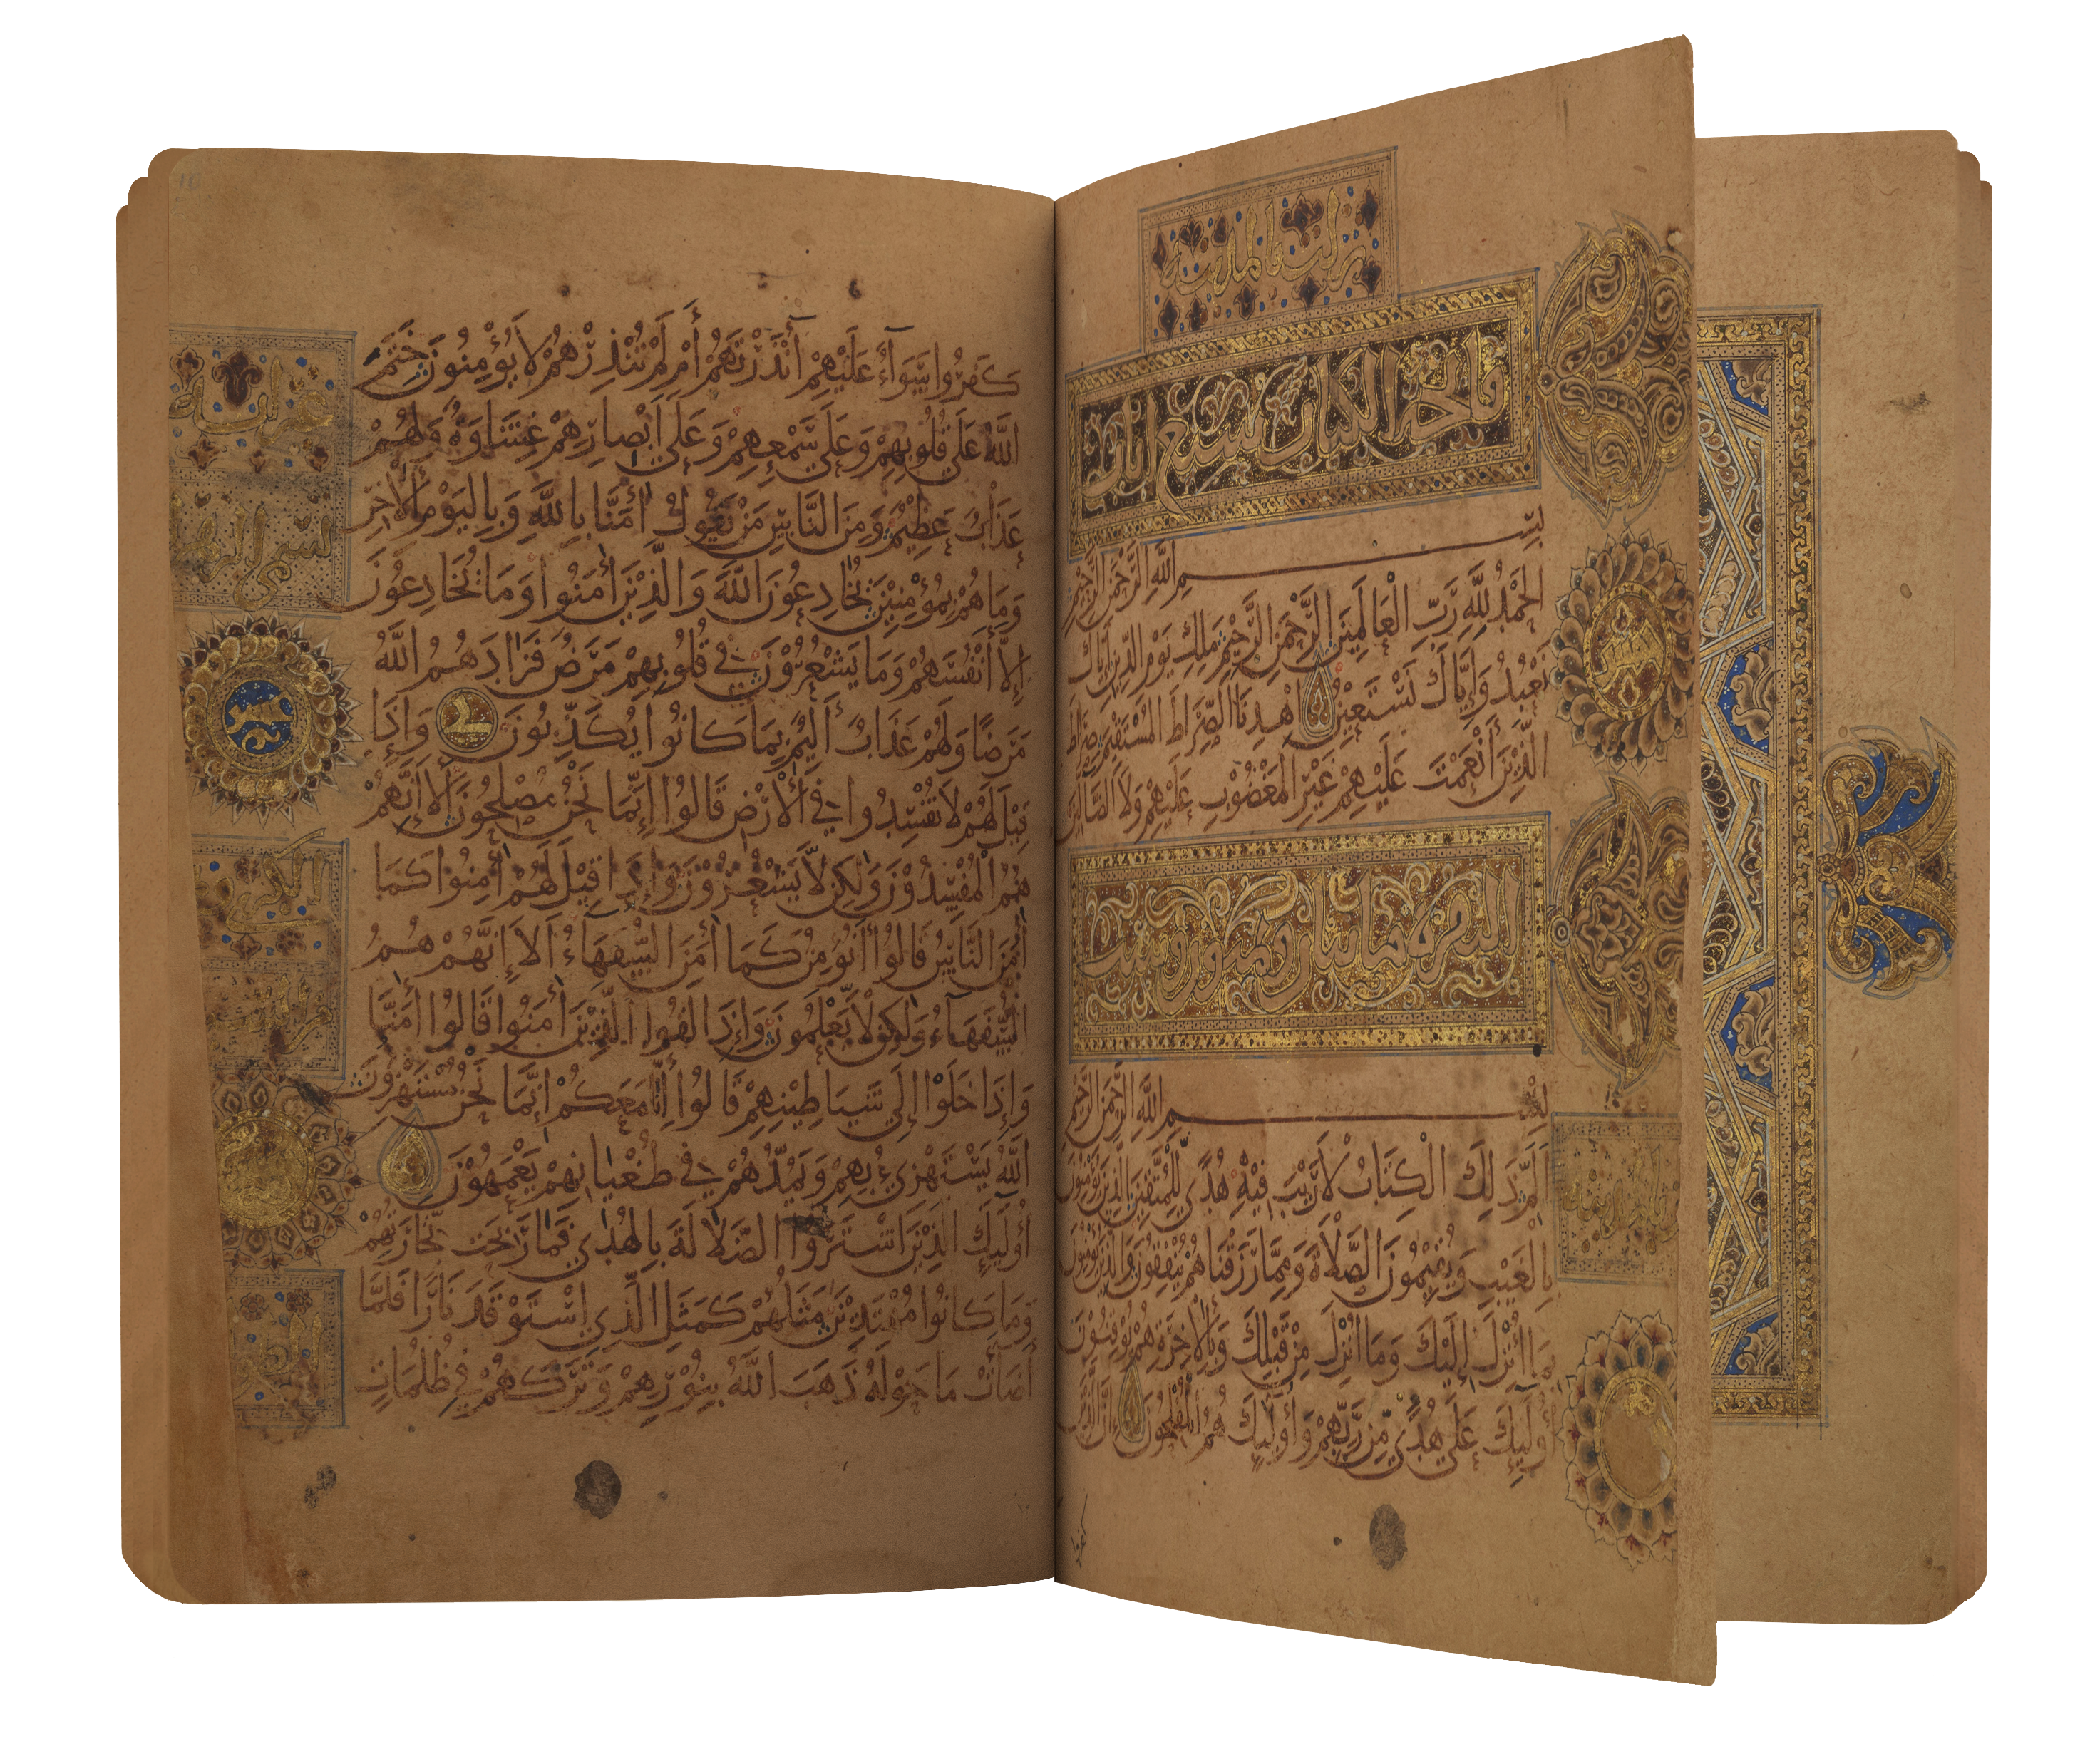 نزلت بالمدينة
فاتحة الكتاب سبع ايات
بسم الله الرحمن الرحيم
الحمد لله رب العالمين الرحمن الرحيم ملك يوم الدين إياك
نعبد وإياك نستعين اهدنا الصراط المستقيم صراط
الذين أنعمت عليهم غير المغضوب عليهم ولا الضالين
البقرة مائتان وثمنون وست
بسم الله الرحمن الرحيم
الم ذلك الكتاب لا ريب فيه هدى للمتقين الذين يؤمنون
بالغيب ويقيمون الصلاة ومما رزقناهم ينفقون والذين يؤمنون
بما أنزل إليك وما أنزل من قبلك وبالآخرة هم يوقنون
أولئك على هدى من ربهم وأولئك هم المفلحون إن الذين
كفروا
كفروا سواء عليهم أأنذرتهم أم لم تنذرهم لا يؤمنون ختم
الله على قلوبهم وعلى سمعهم وعلى أبصارهم غشاوة ولهم
عذاب عظيم ومن الناس من يقول أمنا بالله وباليوم الأخر
وما هم بمؤمنين يخادعون الله والذين أمنوا وما يخادعون
إلا أنفسهم وما يشعرون في قلوبهم مرض فزادهم الله
مرضا ولهم عذاب أليم بما كانوا يكذبون وإذا
قيل لهم لا تفسدوا في الأرض قالوا إنما نحن مصلحون ألا إنهم
هم المفسدون ولكن لا يشعرون وإذا قيل لهم أمنوا كما
أمن الناس قالوا أنؤمن كما أمن السفهاء ألا إنهم هم
السفهاء ولكن لا يعلمون وإذا لقوا الذين أمنوا قالوا أمنا
وإذا خلوا إلى شياطينهم قالوا إنا معكم إنما نحن مستهزون
الله يستهزئ بهم ويمدهم في طغيانهم يعمهون
أولئك الذين اشتروا الضلالة بالهدى فما ربحت تجارتهم
وما كانوا مهتدين مثلهم كمثل الذي استوقد نارا فلما
أضاءت ما حوله ذهب الله بنورهم وتركهم في ظلمات